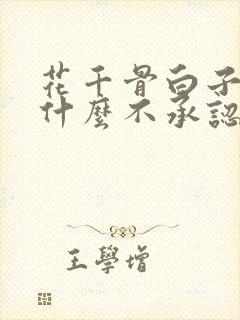 花千骨白子
什麼不承認
王學增